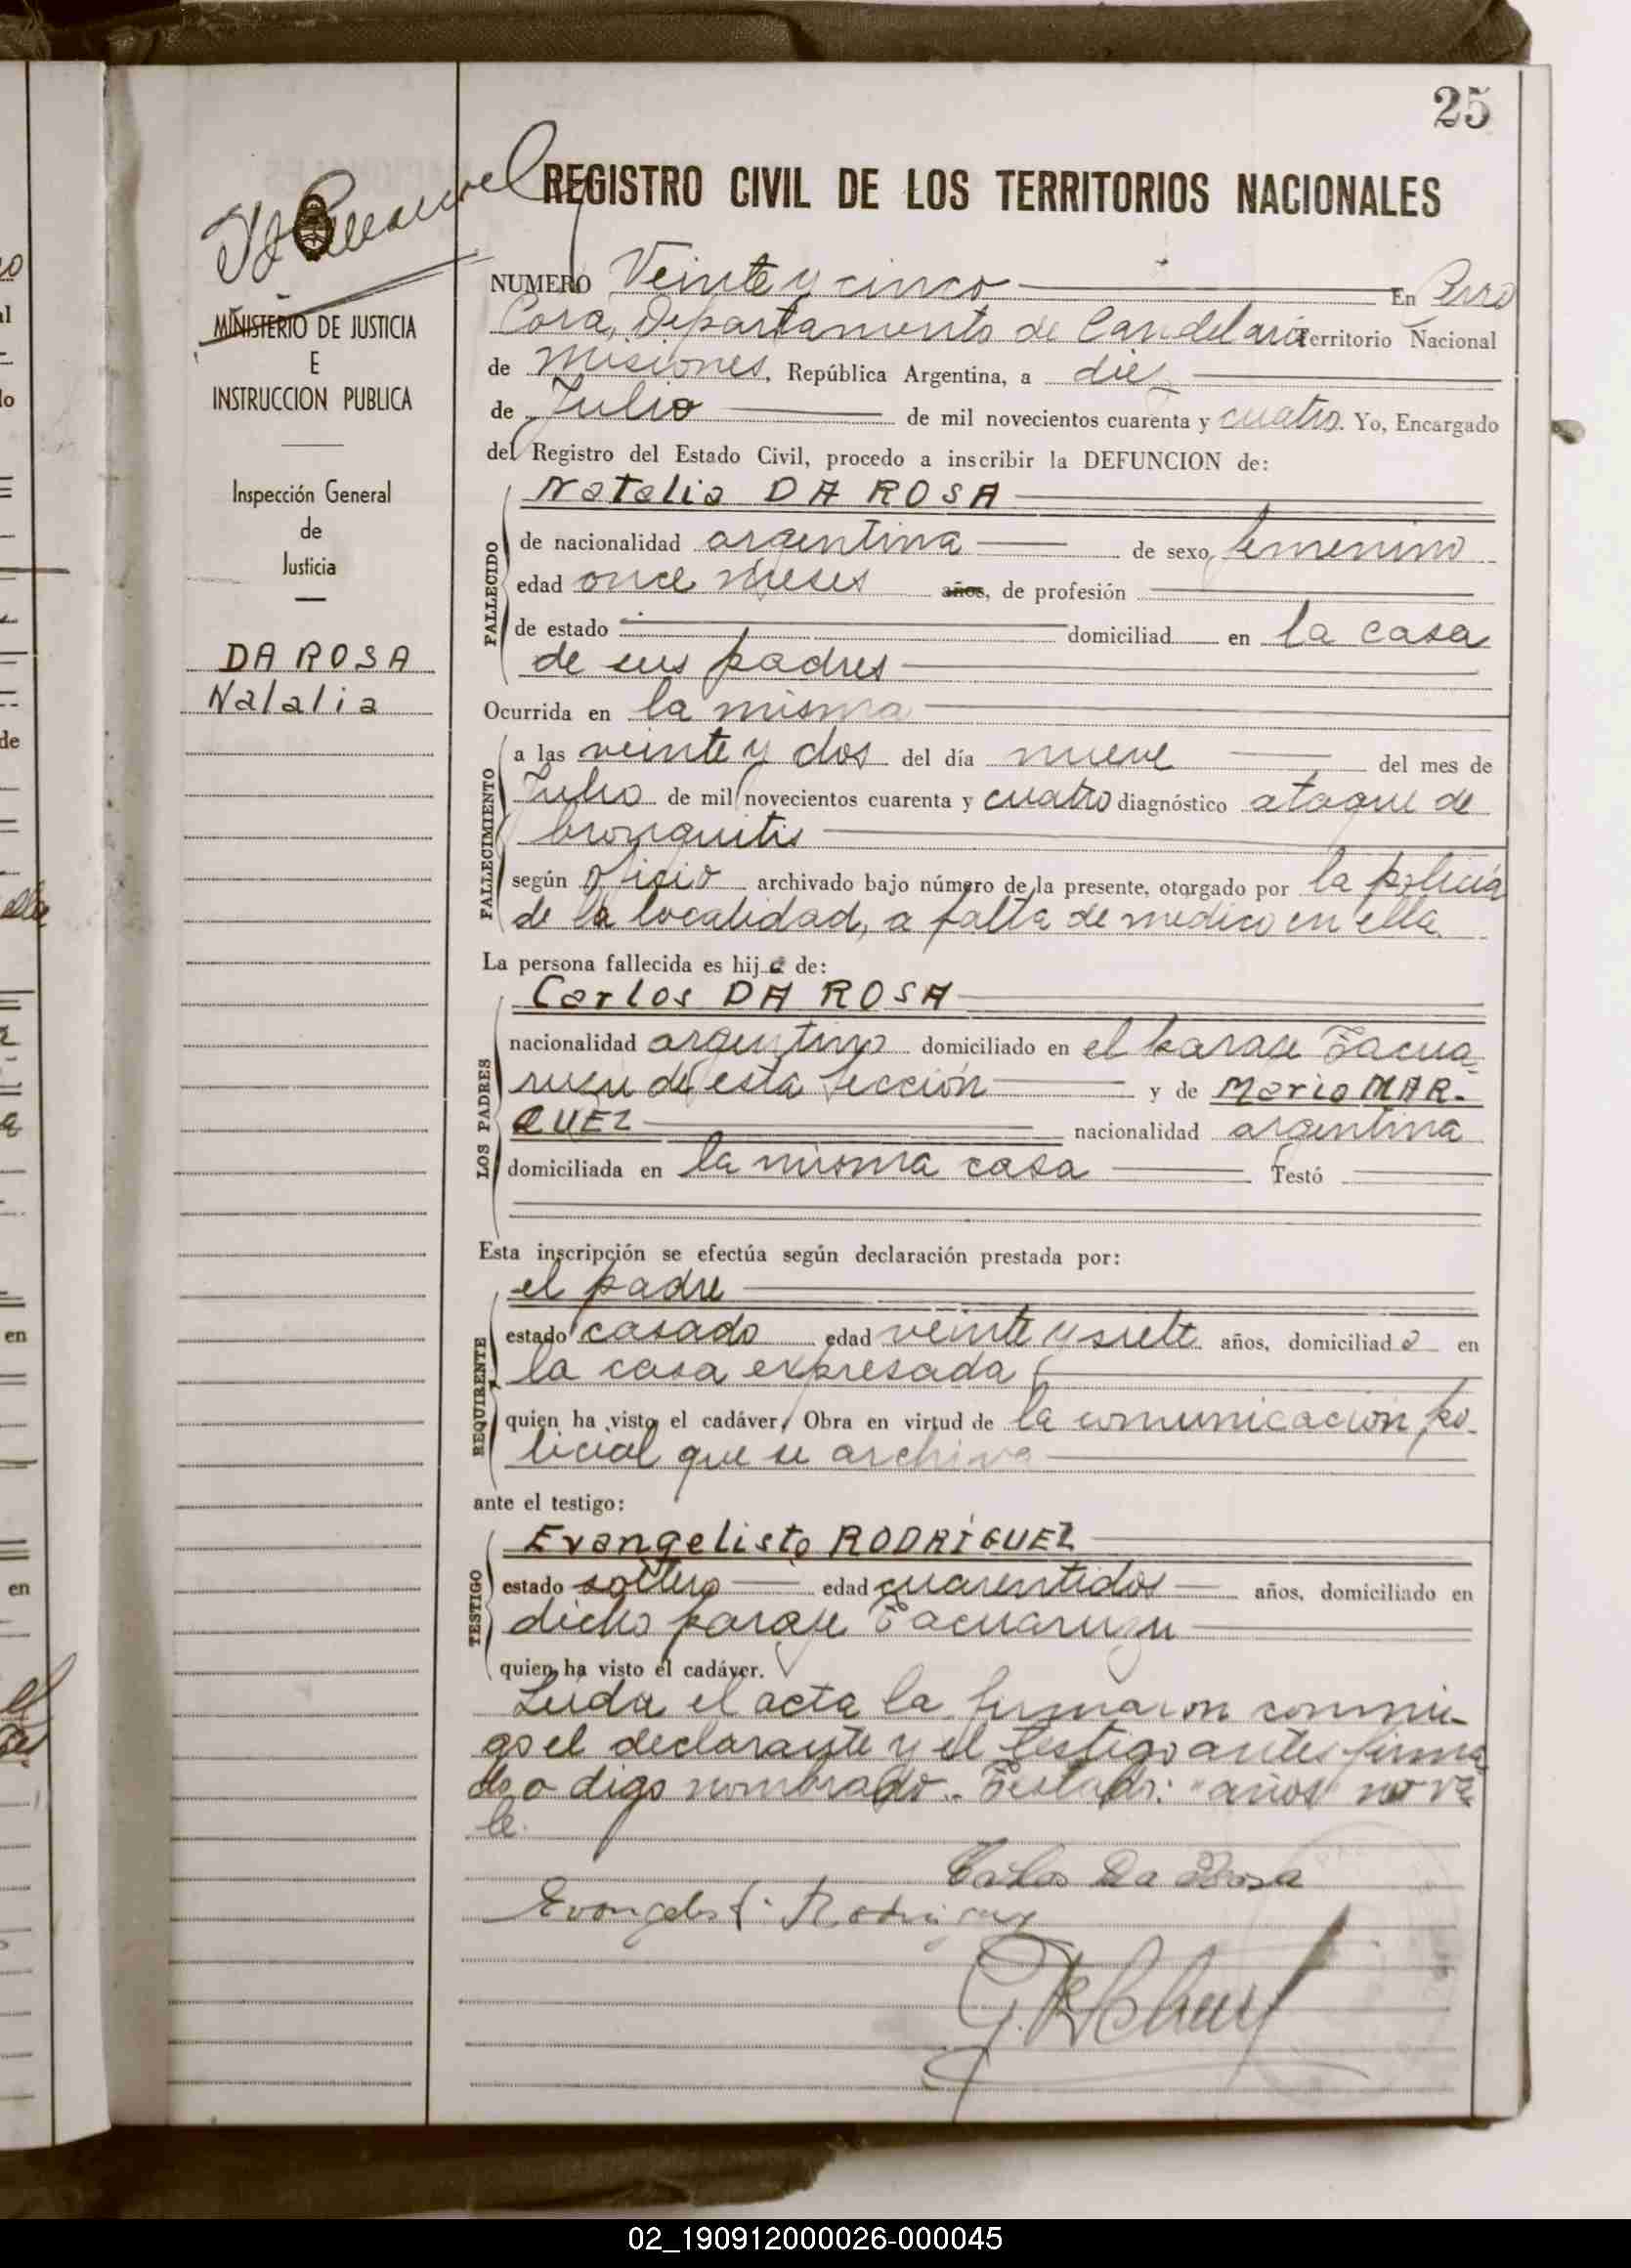 25
REGISTRO CIVIL DE LOS TERRITORIOS NACIONALES
MINISTERIO DE JUSTICIA
E
INSTRUCCION PUBLICA
Inspección General
de
Justicia
DA ROSA
Natalia
NUMERO Veinte y cinco En Cerro
Cora, Departamento de Candelaria Territorio Nacional
de Misiones, República Argentina, a diez
de Julio de mil novecientos cuarenta y cuatro. Yo, Encargado
del Registro del Estado Civil, procedo a inscribir la DEFUNCION de:
FALLECIDO
Natalia DA ROSA
de nacionalidad argentina de sexo femenino
edad once meses años, de profesión
de estado domiciliad en la casa
de sus padres
Ocurrida en la misma
FALLECIMIENTO
a las veinte y dos del día nueve del mes de
Julio de mil novecientos cuarenta y cuatro diagnóstico ataque de
bronquitis
según oficio archivado bajo número de la presente, otorgado por la policia
de la localidad, a falta de medico en ella.
La persona fallecida es hija de:
LOS PADRES
Carlos DA ROSA
nacionalidad argentino domiciliado en el paraje Tacua-
ruzu de esta sección y de Maria MAR-
QUEZ nacionalidad argentina
domiciliada en la misma casa Testó
Esta inscripción se efectúa según declaración prestada por:
REQUIRENTE
el padre
estado casado edad veinte y siete años, domiciliado en
la casa expresada
quien ha visto el cadáver, Obra en virtud de la comunicación po-
licial que se archiva
ante el testigo:
TESTIGO
Evangelisto RODRÍGUEZ
estado soltero edad cuarentidos años, domiciliado en
dicho paraje Tacuaruzu
quien ha visto el cadáver.
Leida el acta la firmaron conmi-
go el declarante y el testigo antes firma
do o digo nombrado.. Testado: "años" no va
le.
Carlos Da Rosa
Evangelist Rodriguez
02_190912000026-000045